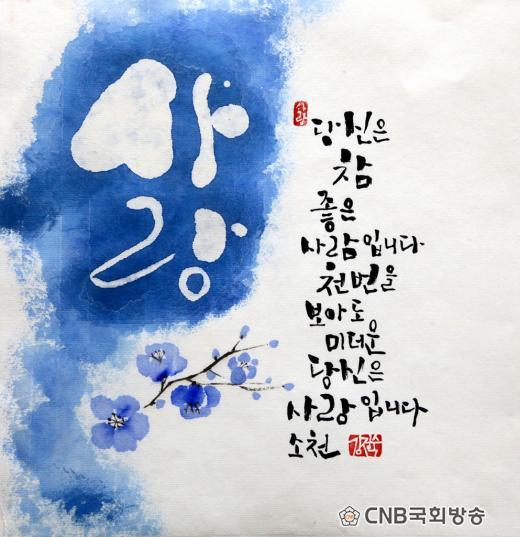 사랑
사랑
당신은
참
좋은
사람입니다
천번을
보아도
미더운
당신은
사랑입니다
소천
CNB국회방송